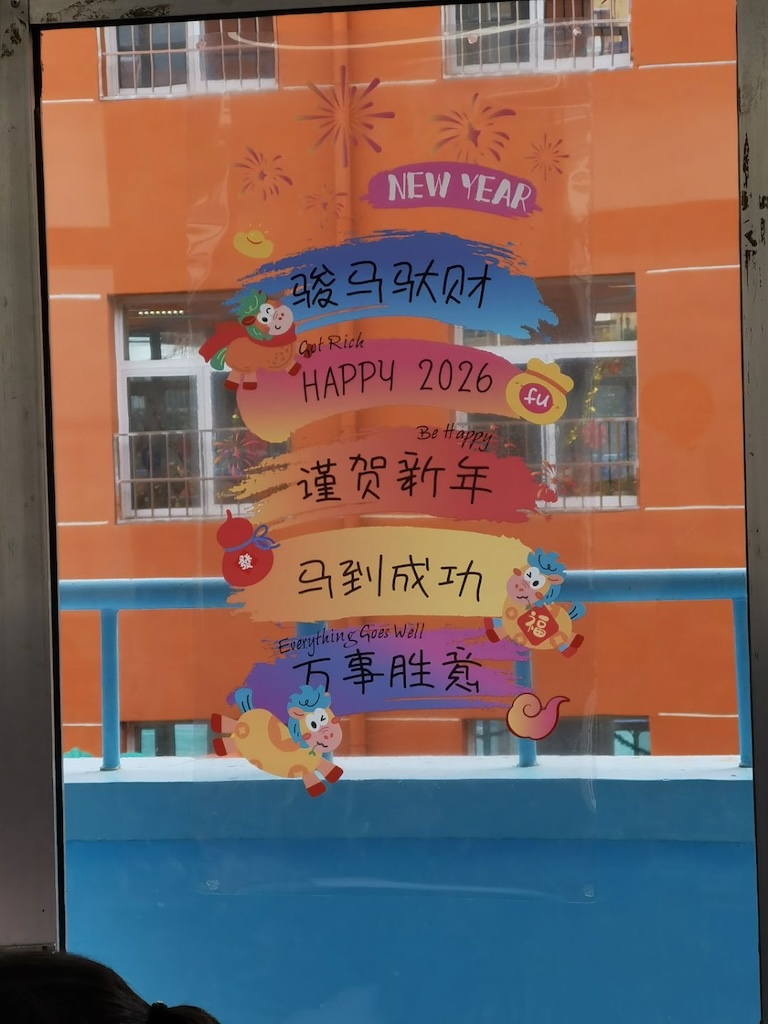 NEW YEAR
骏马驮财
Got Rich
HAPPY 2026
fu
Be Happy
谨贺新年
發
马到成功
福
Everything Goes Well
万事胜意